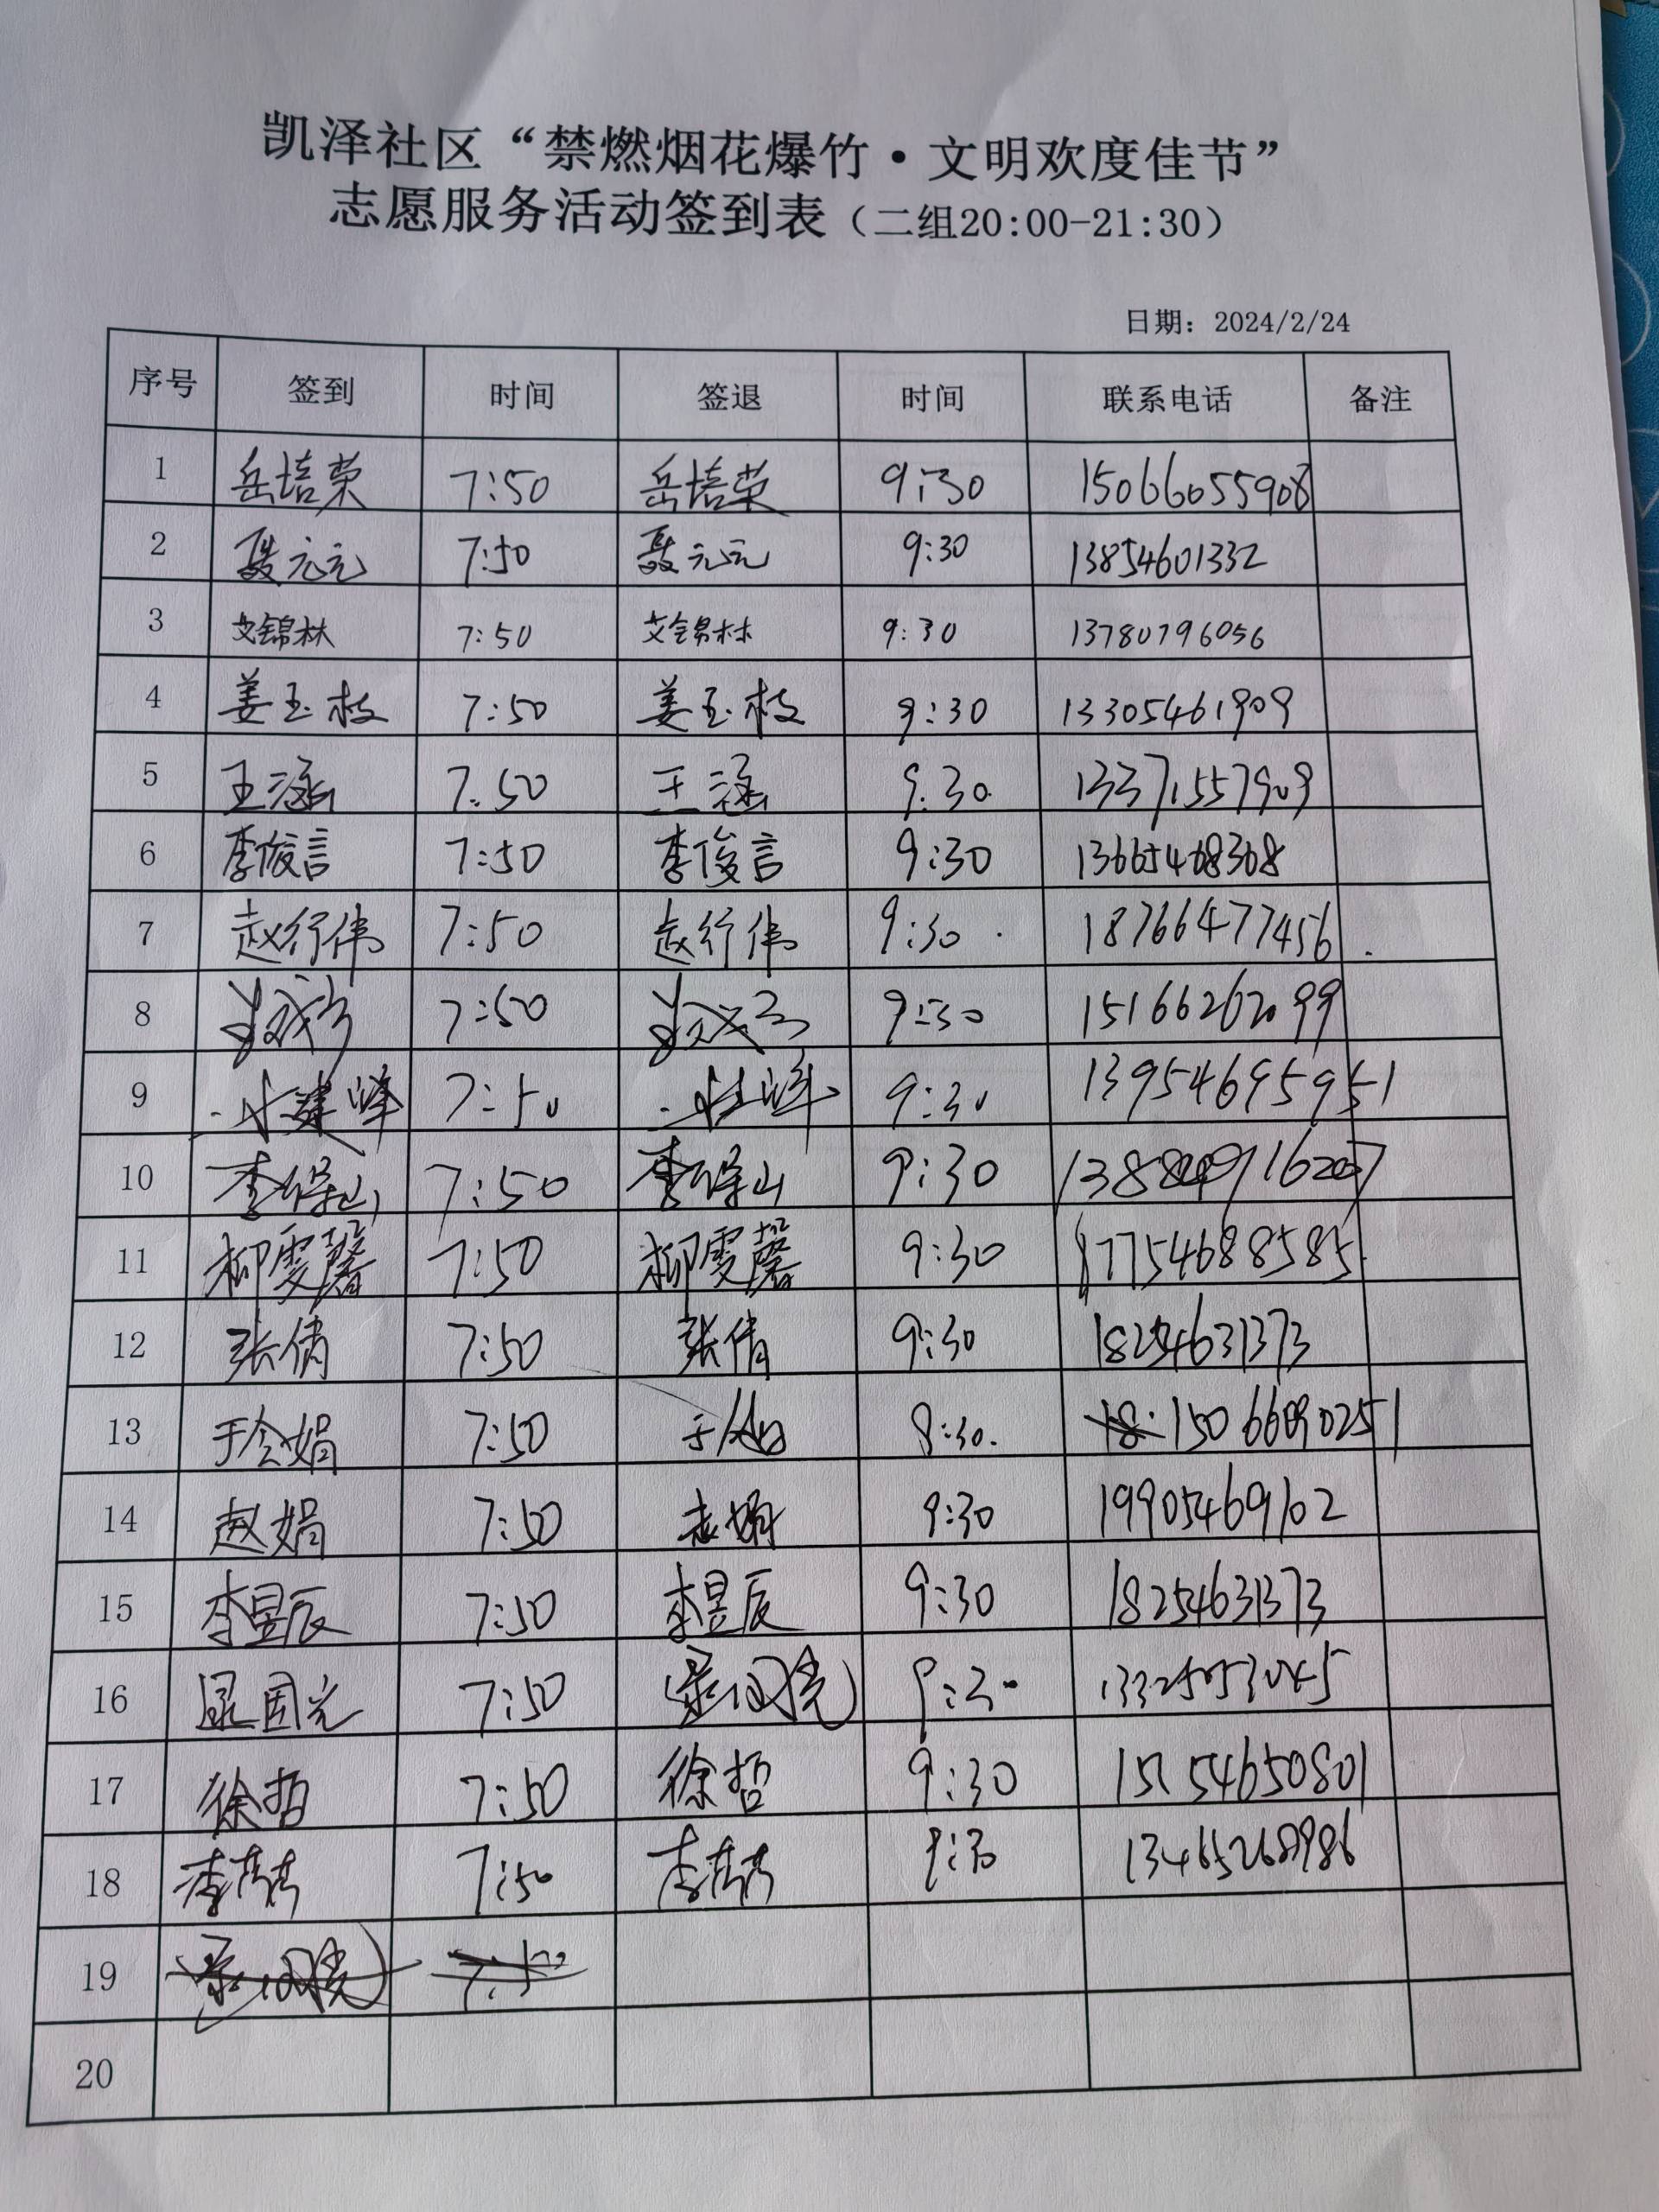 凯泽社区“禁燃烟花爆竹·文明欢度佳节”
志愿服务活动签到表（二组20:00-21:30）
日期：2024/2/24
序号 签到 时间 签退 时间 联系电话 备注
1 岳培荣 7:50 岳培荣 9:30 15066055908
2 聂元元 7:50 聂元元 9:30 13854601332
3 艾锦林 7:50 艾锦林 9:30 13780796056
4 姜玉枝 7:50 姜玉枝 9:30 13305461909
5 王涵 7.50 王涵 9:30 13371557909
6 李俊言 7:50 李俊言 9:30 13665468368
7 赵行伟 7:50 赵行伟 9:30 18766477456
8 7:50 9:30 15166262099
9 7:50 9:30 13954695951
10 李保山 7:50 李保山 9:30
11 柳雯馨 7:50 柳雯馨 9:30 17754688585
12 张倩 7:50 张倩 9:30 18254631373
13 于会娟 7:50 8:30. 15066090251
14 赵娟 7:50 赵娟 9:30 19905469102
15 李昱辰 7:50 李昱辰 9:30 18254631373
16 7:50 9:30
17 徐哲 7:50 徐哲 9:30 15154650801
18 7:50 9:30 13465268986
19
20